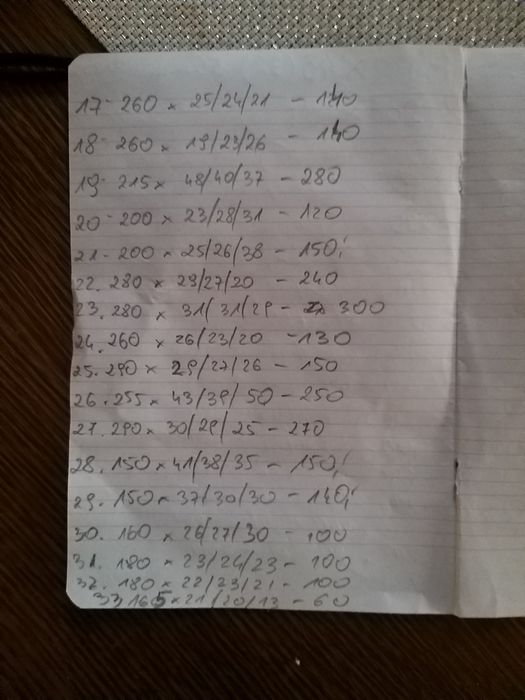 17- 260 x 25/24/21 - 140
18- 260 x 19/23/26 - 140
19- 215 x 48/40/37 - 280
20- 200 x 23/28/31 - 120
21- 200 x 25/26/38 - 150,-
22. 280 x 29/27/20 - 240
23. 280 x 31/31/29 - 300
24. 260 x 26/23/20 - 130
25. 290 x 29/27/26 - 150
26. 255 x 43/39/50 - 250
27. 290 x 30/29/25 - 270
28. 150 x 41/38/35 - 150,-
29. 150 x 37/30/30 - 140,-
30. 160 x 26/27/30 - 100
31. 180 x 23/24/23 - 100
32. 180 x 22/23/21 - 100
33 165 x 21/20/13 - 60